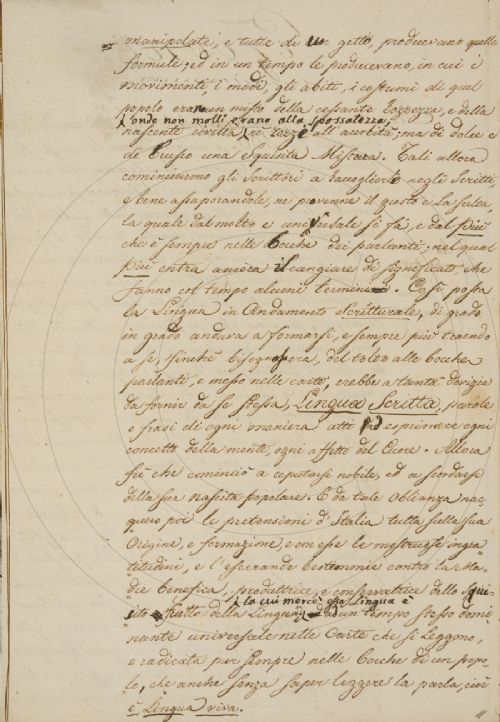 manipolati, e tutte di un getto, producevano quelle
formule; ed in un tempo le producevano, in cui i
movimenti, i modi, gli abiti, i costumi di quel
popolo eran un misto della cessante rozzezza, e della
onde non molli erano alla spossatezza,
nascente civiltà, nè rozzi all'acerbità; ma di dolce e
di brusco una squisita Mistura. Tali allora
cominciarono gli Scrittori a raccoglierle negli Scritti,
e bene assaporandole, ne provenne il gusto e la scelta
la quale dal molto e universale si fà, e dal più
che è sempre nelle bocche dei parlanti; nel qual
più entra ancora il cangiare di significati, che
fanno col tempo alcuni termini. Così posta
la Lingua in andamento Scritturale, di grado
in grado andava a formarsi, e sempre più traendo
a sè, finchè bisogno era, del tolto alle bocche
parlanti, e messo nelle carte, crebbe a tanta dovizia
da fornir da se stessa, Lingua Scritta, parole
e frasi di ogni maniera atti ad esprimere ogni
concetto della mente, ogni affetto del Cuore. Allora
fù che cominciò a reputarsi nobile, ed a scordarsi
della sua nascita popolare. E da tale obblianza nac-
quero poi le pretensioni d'Italia tutta sulla sua
origine, e formazione, e con esse le mostruose ingra
titudini, e l'esecrande bestemmie contro la Ma-
dre benefica, produttrice, e conservatrice dello squi-
la cui mercè essa Lingua è
sito frutto della Lingua, ad un tempo stesso domi-
nante universale nelle Carte che si leggono,
e radicata per sempre nelle bocche di un popo-
lo, che anche senza saper leggere la parla, cioè
è Lingua viva.